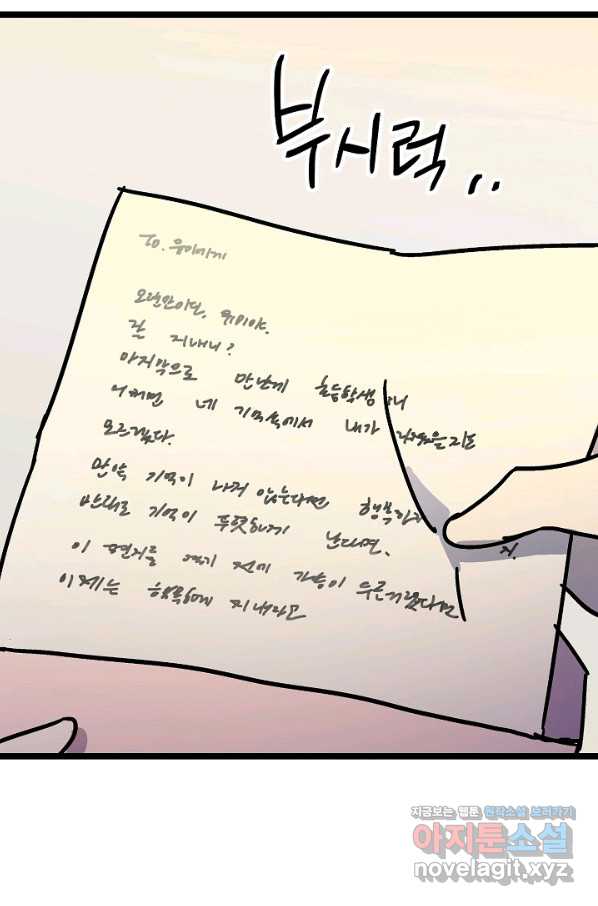 부시럭..
To. 유미에게
오랜만이다, 유미야.
잘 지내니?
마지막으로 만난게 초등학생 니
어쩌면 네 기억속에서 내가 지도
모르겠다.
만약 기억이 나지 않는다면 행복하
반대로 기억이 뚜렷하게 난다면,
이 편지를 전에 가슴이 두근거렸다면
지.
이제는 행복하게 지내라고
지금보는 웹툰 원작소설 보러가기
아지툰소설
novelagit.xyz